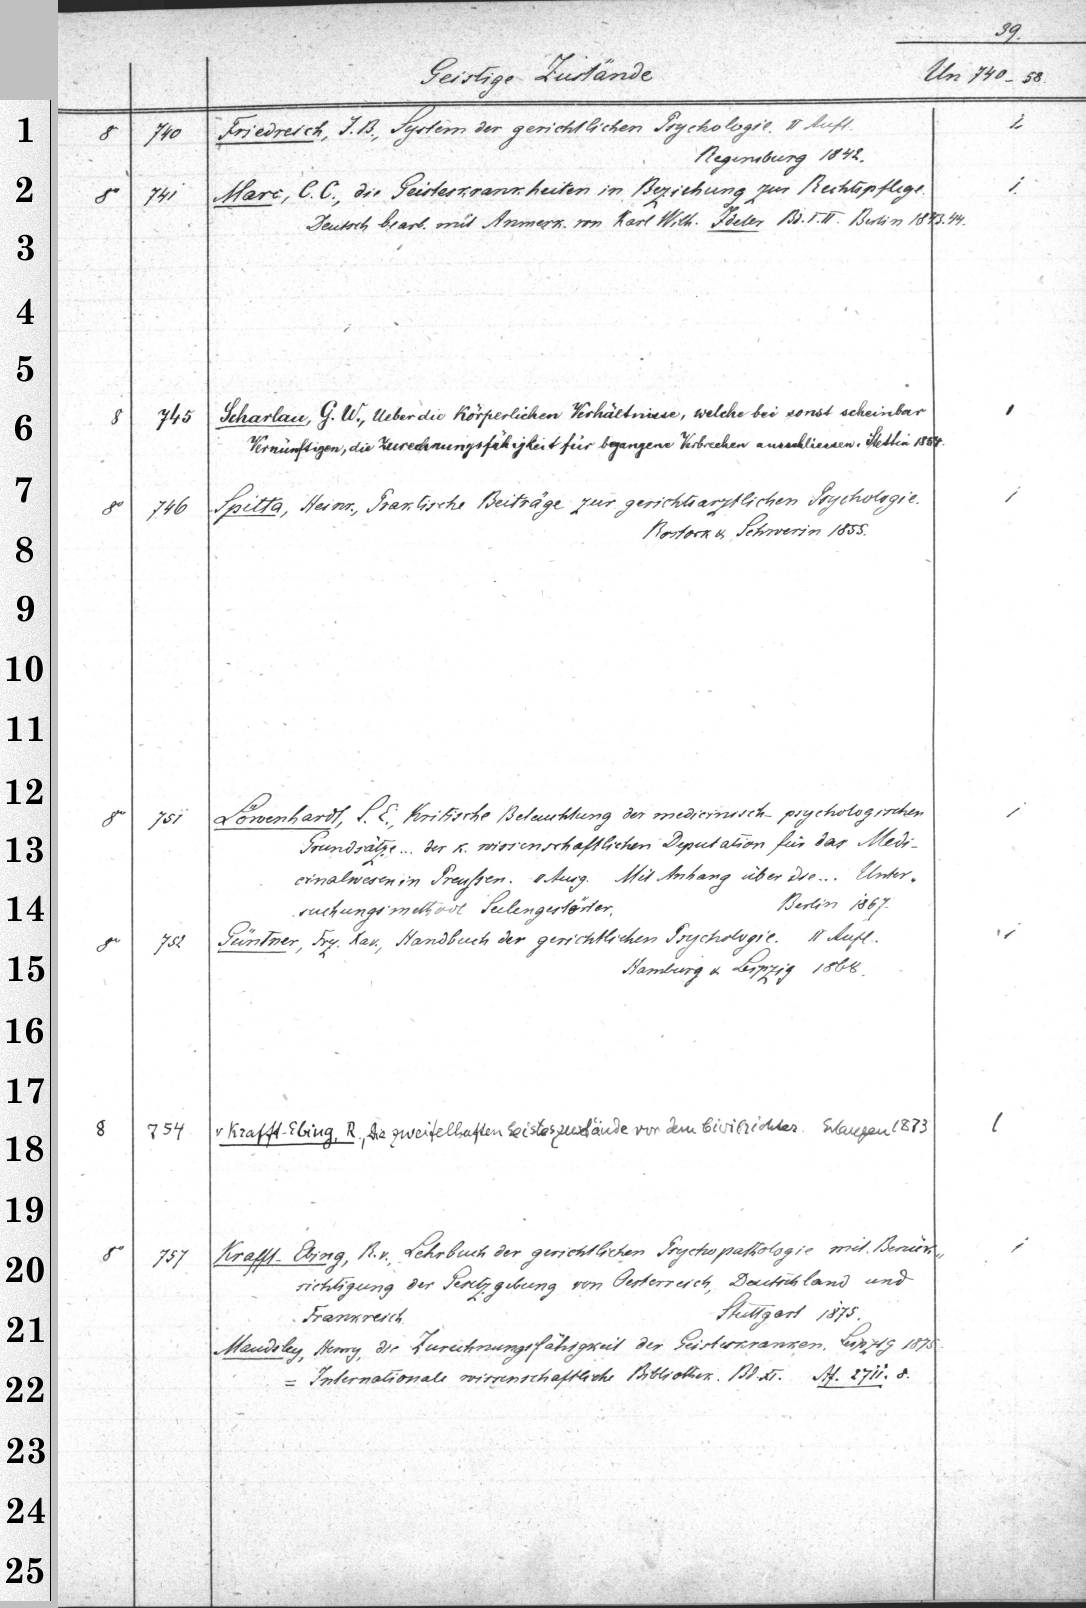 39.
Geistige Zustände Un 740-58.
1 8 740 Friedreich, J. B., System der gerichtlichen Psychologie. II Aufl. i.
Regensburg 1842.
2 8° 741 Marc, C. C., die Geisteskrankheiten in Beziehung zur Rechtspflege. i.
Deutsch bearb. mit Anmerk. von Karl Wilh. Ideler Bd. I. II. Berlin 1843.44.
3
4
5
6 8 745 Scharlau, G. W., Ueber die körperlichen Verhältnisse, welche bei sonst scheinbar
Vernünftigen, die Zurechnungsfähigkeit für begangene Verbrechen ausschliessen. Stettin
7 8° 746 Spitta, Heinr., Praktische Beiträge zur gerichtsarztlichen Psychologie. i
Rostock u. Schwerin 1855.
8
9
10
11
12
8° 751 Löwenhardt, S. E., Kritische Beleuchtung der medicinisch-psychologischen i
13 Grundsätze... der k. wissenschaftlichen Deputation für das Medi-
cinalwesen in Preußen. Ausg. Mit Anhang über die... Unter-
14 suchungsmethode Seelengestörter. Berlin 1867.
8° 752 Güntner, Frz. Xav., Handbuch der gerichtlichen Psychologie. II Aufl. i
15 Hamburg u. Leipzig 1868.
16
17
18 8 754 v Krafft-Ebing, R., Die zweifelhaften Geisteszustände vor dem Civilrichter. Erlangen 1873
19
8° 757 Krafft-Ebing, R. v., Lehrbuch der gerichtlichen Psychopathologie mit Berück- i
20 sichtigung der Gesetzgebung von Oesterreich, Deutschland und
Frankreich. Stuttgart 1875.
21 Maudsley, Henry, die Zurechnungsfähigkeit der Geisteskranken. Leipzig 1875.
22 = Internationale wissenschaftliche Bibliothek. Bd. XI. Af. 2711. 8.
23
24
25